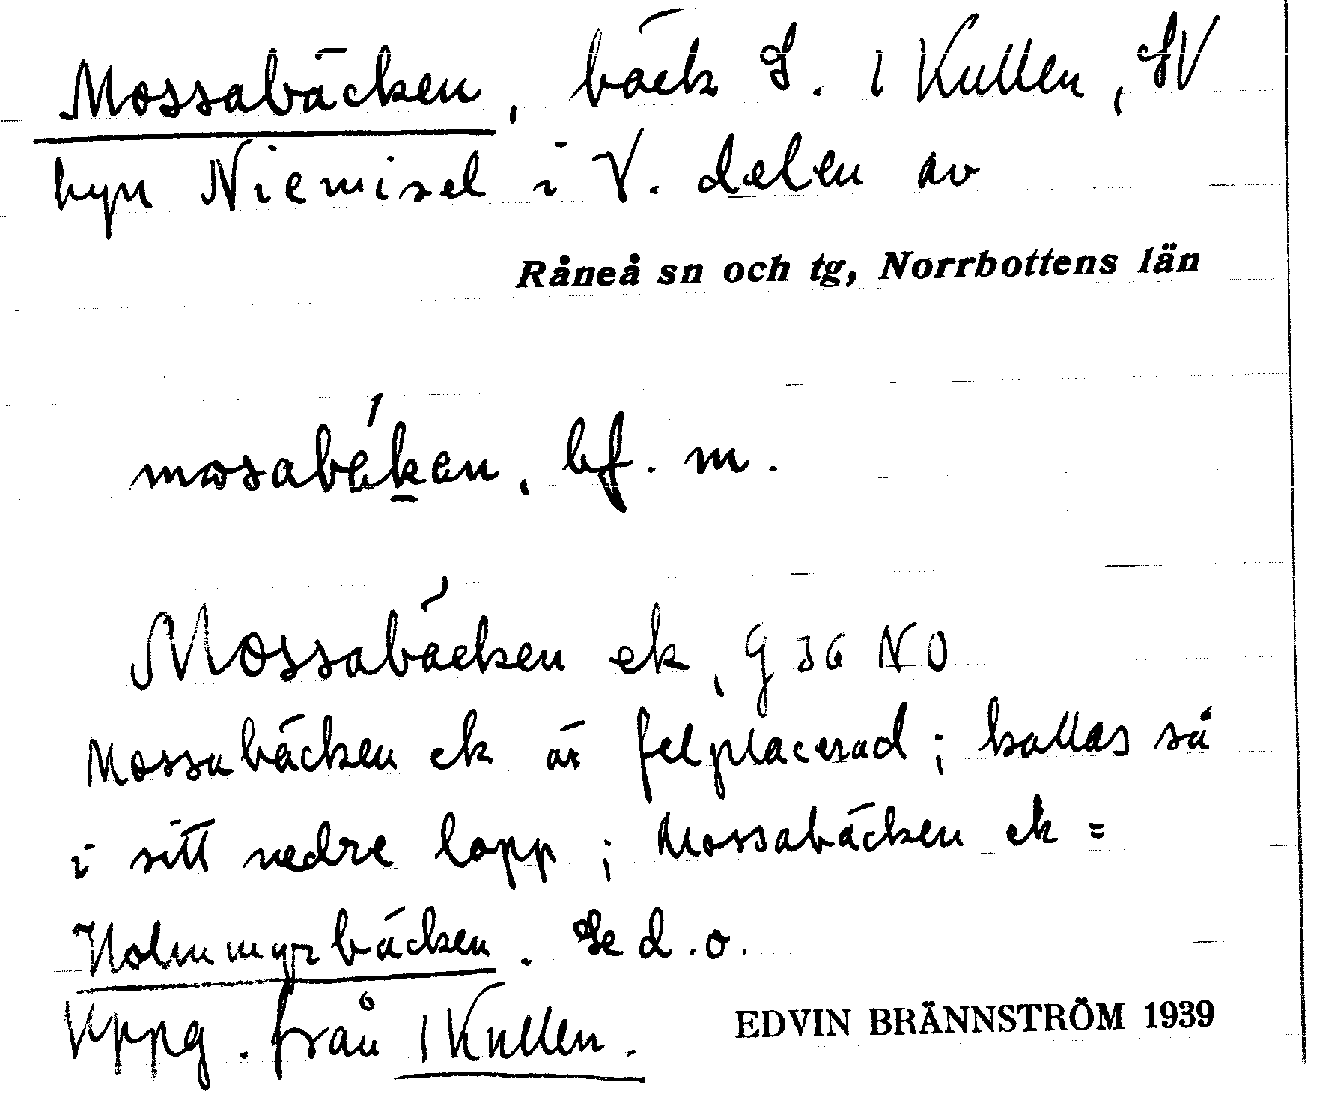 Mossabäcken, bäck S. 1 Kullen, SV
byn Niemisel i V. delen av
Råneå sn och tg, Norrbottens län
mosabékan, bf. m.
Mossabäcken ek, g 36 NO
Mossabäcken ek är felplacerad; kallas så
i sitt nedre lopp; Mossabäcken ek =
Holmmyrbäcken. Se d. o.
Uppg. från 1 Kullen.
EDVIN BRÄNNSTRÖM 1939